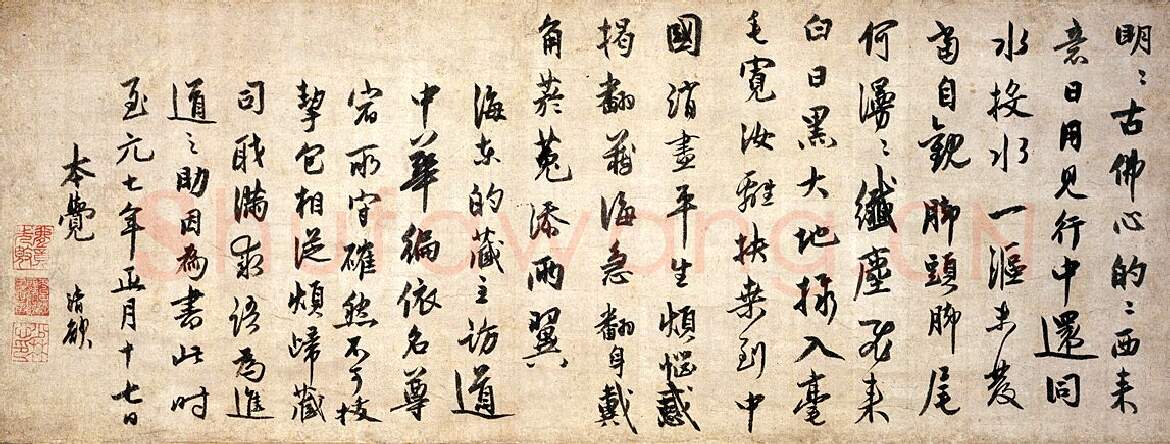 明〻古佛心的〻西来
意日用見行中還同
水投水一漚未發
當自觀脚頭脚尾
何漫〻纖塵飛来
白日黑大地撮入毫
毛寬汝離扶桒到中
國消盡平生煩惱惑
掲翻蒼海急翻身戴
角菸菟添兩翼
海東的藏主訪道
中華徧依名尊
宿所守確然不可拔
挈包相從煩歸藏
司職滿求語為進
道之助因為書此時
至元七年正月十七日
本覺 清欲
Shufawang.CN